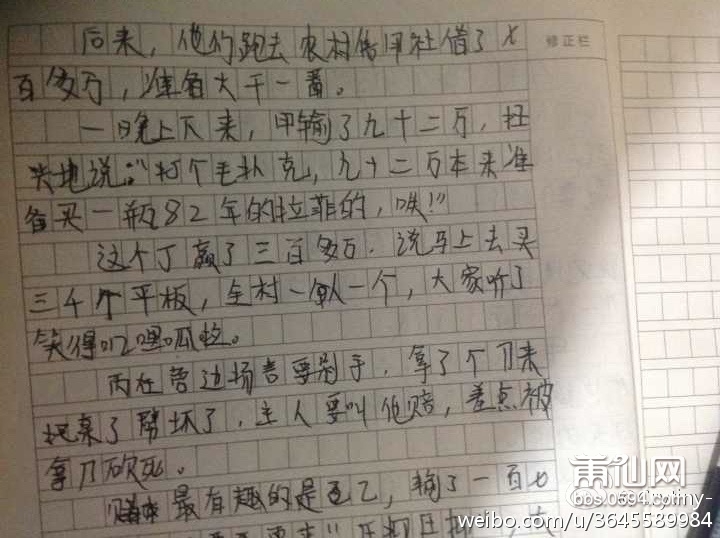 后来，他们跑去农村信用社借了X
百多万，准备大干一番。
一晚上下来，甲输了九十二万，狂
笑地说："打个毛扑克，九十二万本来准
备买一瓶82年的拉菲的，唉！"
这个丁赢了三百多万，说马上去买
三千个平板，全村一人一个，大家听了
笑得叽哩呱拉。
丙在旁边扬言要剁手，拿了个刀来
把桌子劈坏了，主人要叫他赔，差点被
拿刀砍死。
最有趣的是乙，输了一百七
修正栏
莆仙网
bbs.0594.com
weibo.com/u/3645589984